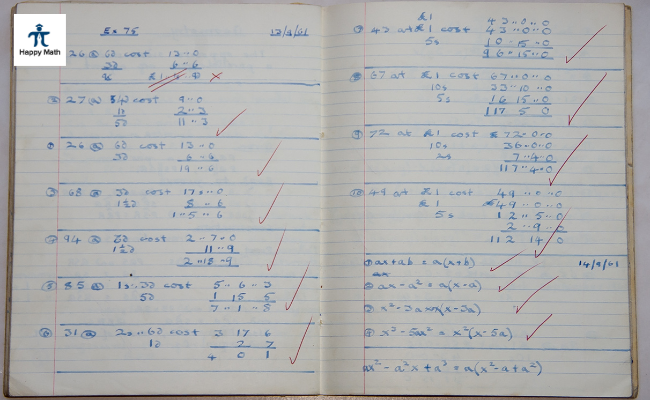 Happy Math
Ex 75
12/9/61
26 @ 6d cost 13 .. 0
3d 6 .. 6
27 @ 4d cost 9 .. 0
1d 2 .. 3
5d 11 .. 3
26 @ 6d cost 13 .. 0
3d 6 .. 6
19 .. 6
68 @ 3d cost 17s .. 0
1½d 8 .. 6
1 .. 5 .. 6
94 @ 6d cost 2 - 7 - 0
1½d 11 .. 9
2 .. 18 - 9
85 @ 1s .. 3d cost 5 .. 6 .. 3
5d 1 15 5
7 .. 1 .. 8
31 @ 2s .. 6d cost 3 17 6
1d 2 7
4 0 1
£1 43 .. 0 .. 0
43 at £1 cost 43 .. 0 .. 0
5s 10 - 15 .. 0
96 .. 15 .. 0
67 at £1 cost 67 .. 0 .. 0
10s 33 .. 10 .. 0
5s 16 15 .. 0
117 5 0
72 at £1 cost £72 .. 0 .. 0
10s 36 .. 0 .. 0
2s 7 .. 4 .. 0
117 .. 4 .. 0
49 at £1 cost 49 .. 0 .. 0
£1 49 .. 0 .. 0
5s 12 .. 5 .. 0
2 .. 9 .. 0
112 14 0
ax + ab = a(x+b)
14/9/61
ax
ax - a² = a(x-a)
x² - 3ax = x(x-3a)
x³ - 5ax² = x²(x-5a)
ax² - a²x + a³ = a(x² - a + a²)